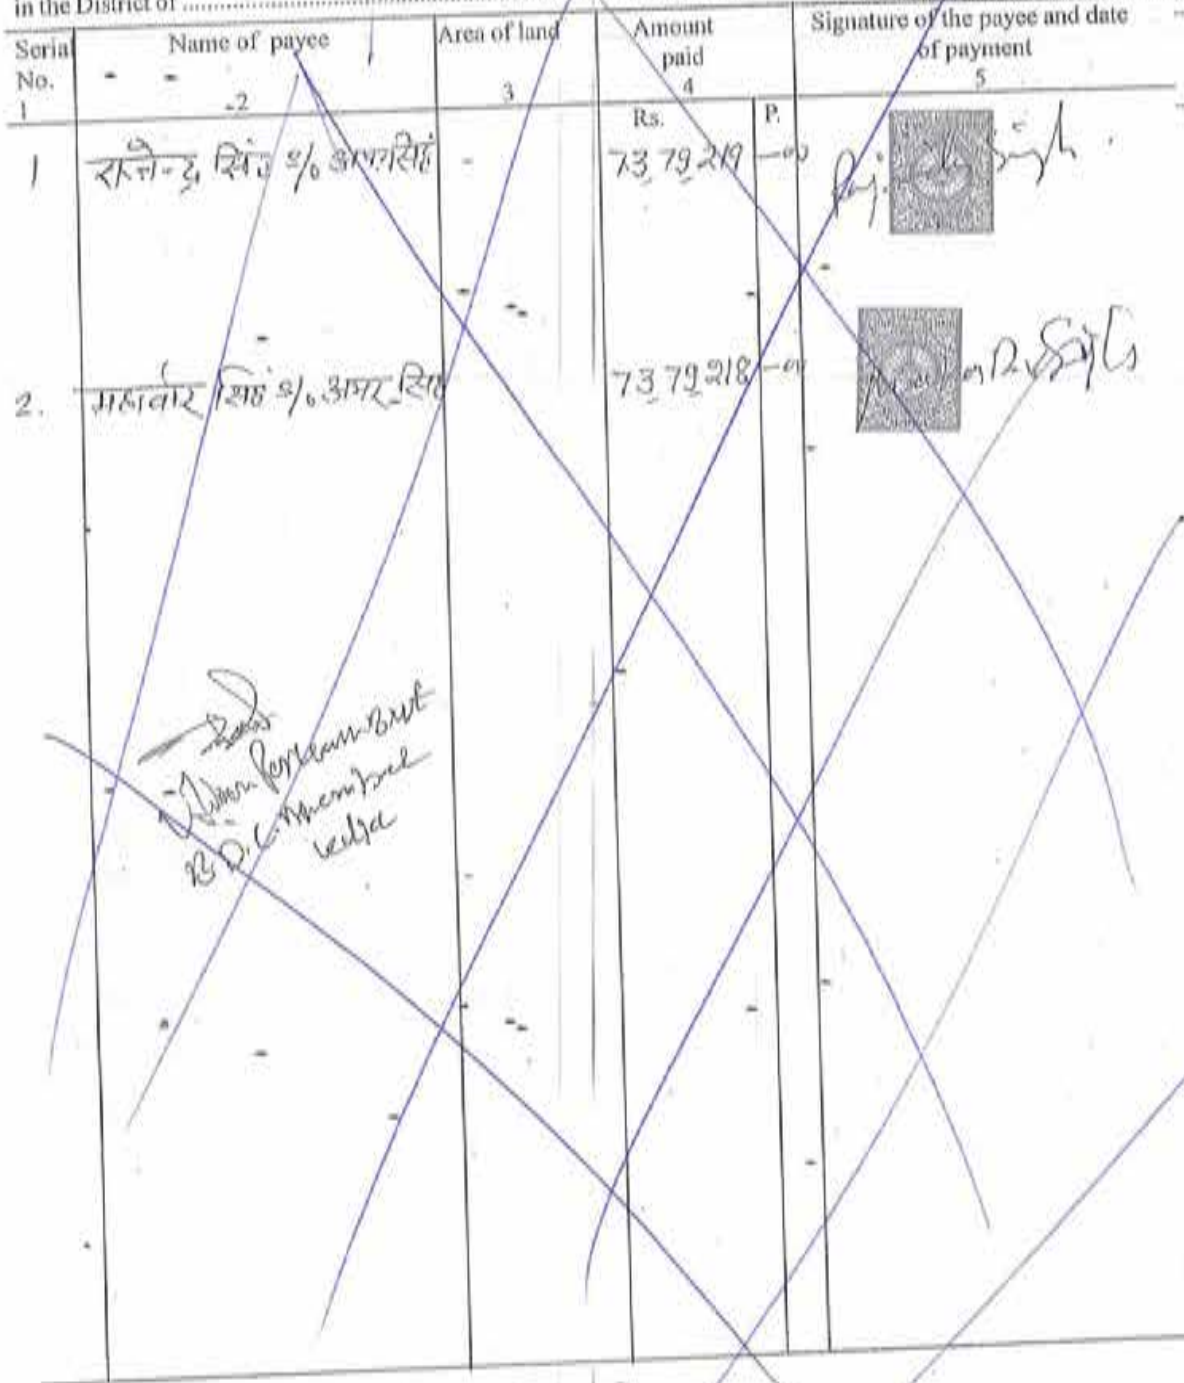 in the District of
Serial No. Name of payee Area of land Amount paid Signature of the payee and date of payment
1 2 3 4 5
Rs. P.
1 राजेन्द्र सिंह S/o अमर सिंह 73,79,219 —00 Raj. Singh
2. महावीर सिंह S/o अमर सिंह 73,79,218 —00
B.D.C. Member